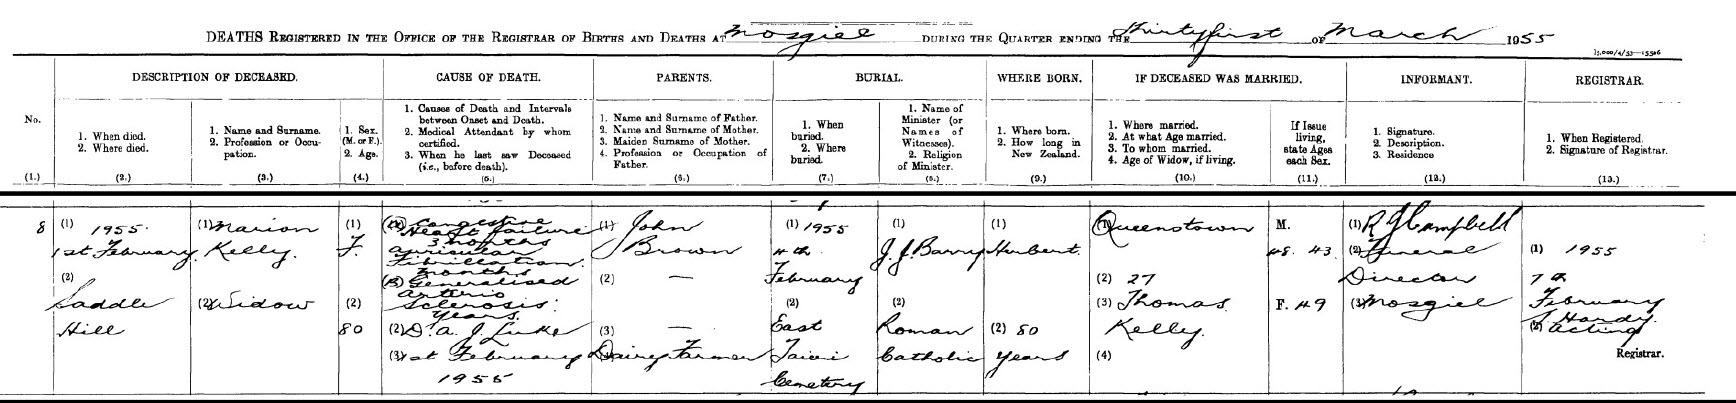 DEATHS REGISTERED IN THE OFFICE OF THE REGISTRAR OF BIRTHS AND DEATHS AT Mosgiel DURING THE QUARTER ENDING THE Thirtyfirst OF March 1955
No.
(1.)
DESCRIPTION OF DECEASED.
1. When died.
2. Where died.
(2.)
1. Name and Surname.
2. Profession or Occu-
pation.
(3.)
1. Sex.
(M. or F.).
2. Age.
(4.)
CAUSE OF DEATH.
1. Causes of Death and Intervals
between Onset and Death.
2. Medical Attendant by whom
certified.
3. When he last saw Deceased
(i.e., before death).
(5.)
PARENTS.
1. Name and Surname of Father.
2. Name and Surname of Mother.
3. Maiden Surname of Mother.
4. Profession or Occupation of
Father.
(6.)
BURIAL.
1. When
buried.
2. Where
buried.
(7.)
1. Name of
Minister (or
Names of
Witnesses).
2. Religion
of Minister.
(8.)
WHERE BORN.
1. Where born.
2. How long in
New Zealand.
(9.)
IF DECEASED WAS MARRIED.
1. Where married.
2. At what Age married.
3. To whom married.
4. Age of Widow, if living.
(10.)
If Issue
living,
state Ages
each Sex.
(11.)
INFORMANT.
1. Signature.
2. Description.
3. Residence
(12.)
REGISTRAR.
1. When Registered.
2. Signature of Registrar.
(13.)
8
(1) 1955.
1st February.
(2)
Saddle
Hill
(1) Marion
Kelly.
(2) Widow
(1)
F.
(2)
80
(1) (a) Congestive
Heart Failure
3 months
Auricular
Fibrillation.
months
(B) Generalised
Arterio
Sclerosis.
Years.
(2) Dr. A. J. Luke
(3) 1st February
1955
(1) John
Brown
(2) —
(3) —
(4) Dairy Farmer
(1) 1955
4th
February
(2)
East
Taieri
Cemetery
(1)
J. J. Barry
(2)
Roman
Catholic
(1)
Herbert.
(2) 80
years
(1) Queenstown
(2) 27
(3) Thomas
Kelly.
(4)
M.
48. 43.
F. 49
(1) R J Campbell
(2) Funeral
Director
(3) Mosgiel
(1) 1955
7th
February
(2) J. Hardy.
Acting
Registrar.